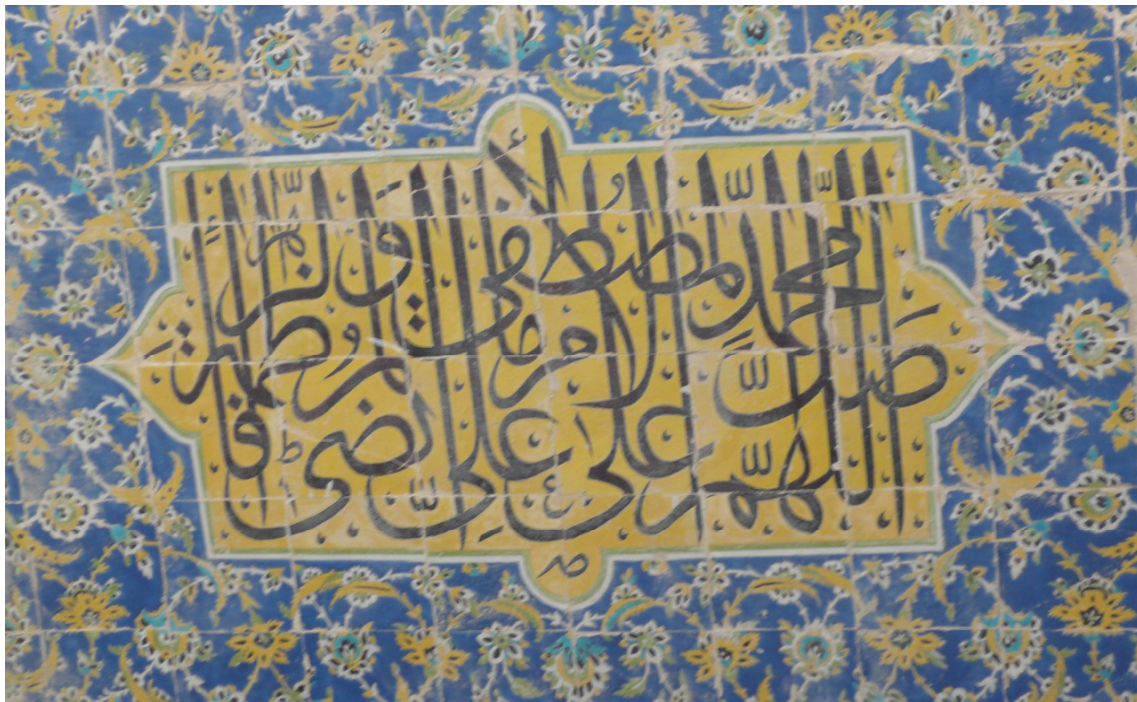 اللهم صل على محمد المصطفى و على المرتضى و فاطمة الزهراء